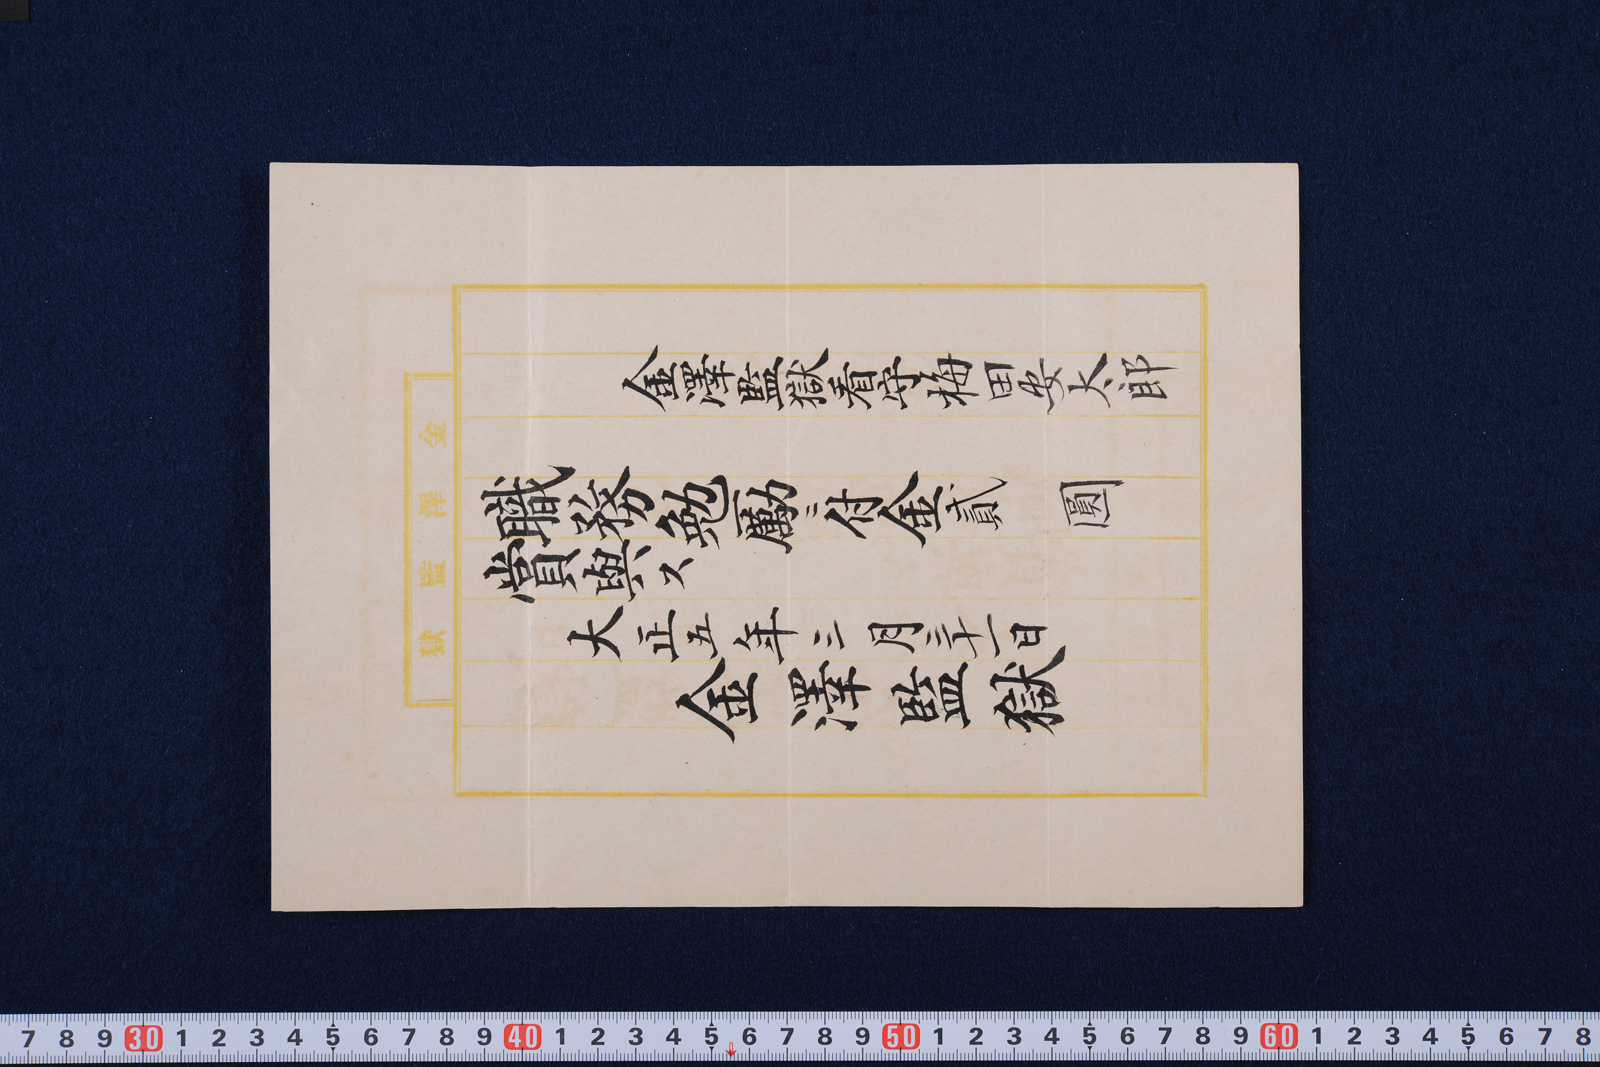 金澤監獄看守梅田安太郎
職務勉励ニ付金貳圓
賞與ス
大正五年三月三十一日
金澤監獄
金澤監獄
7 8 9 30 1 2 3 4 5 6 7 8 9 40 1 2 3 4 5 6 7 8 9 50 1 2 3 4 5 6 7 8 9 60 1 2 3 4 5 6 7 8